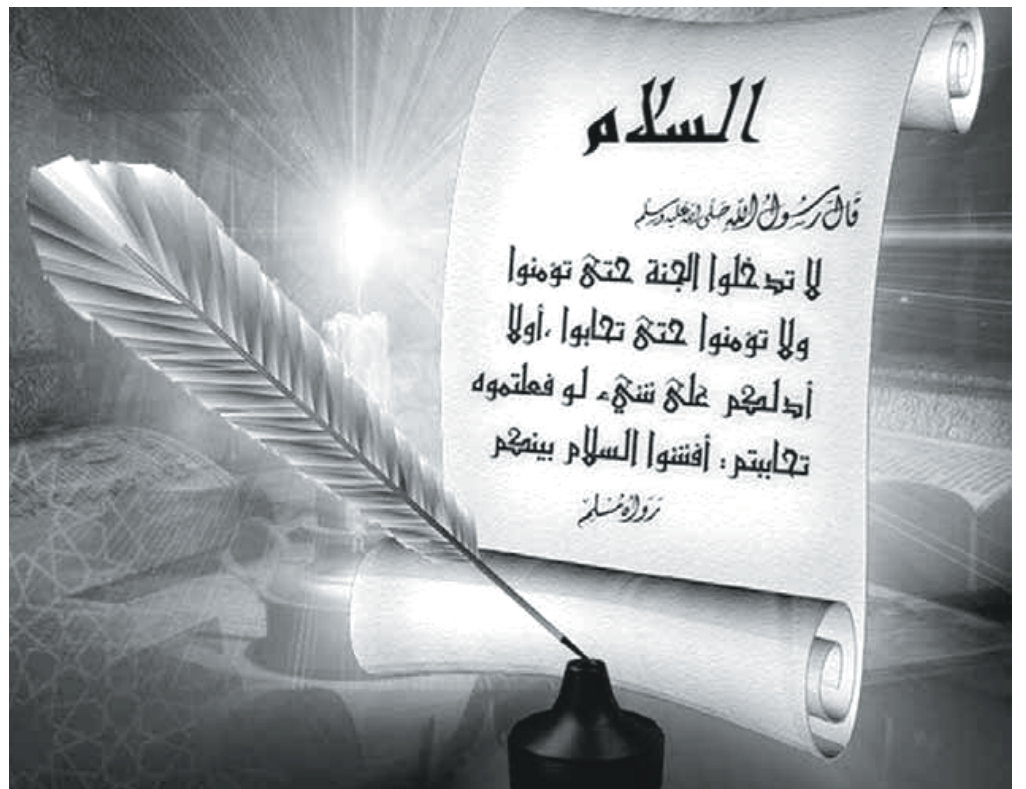 السلام
قَالَ رَسُولُ اللّٰه صَلَّى اللهُ عَلَيْهِ وَسَلَّمَ
لا تدخلوا الجنة حتى تؤمنوا
ولا تؤمنوا حتى تحابوا ،أولا
أدلكم على شيء لو فعلتموه
تحاببتم : أفشوا السلام بينكم
رَوَاهُ مُسْلِمٌ